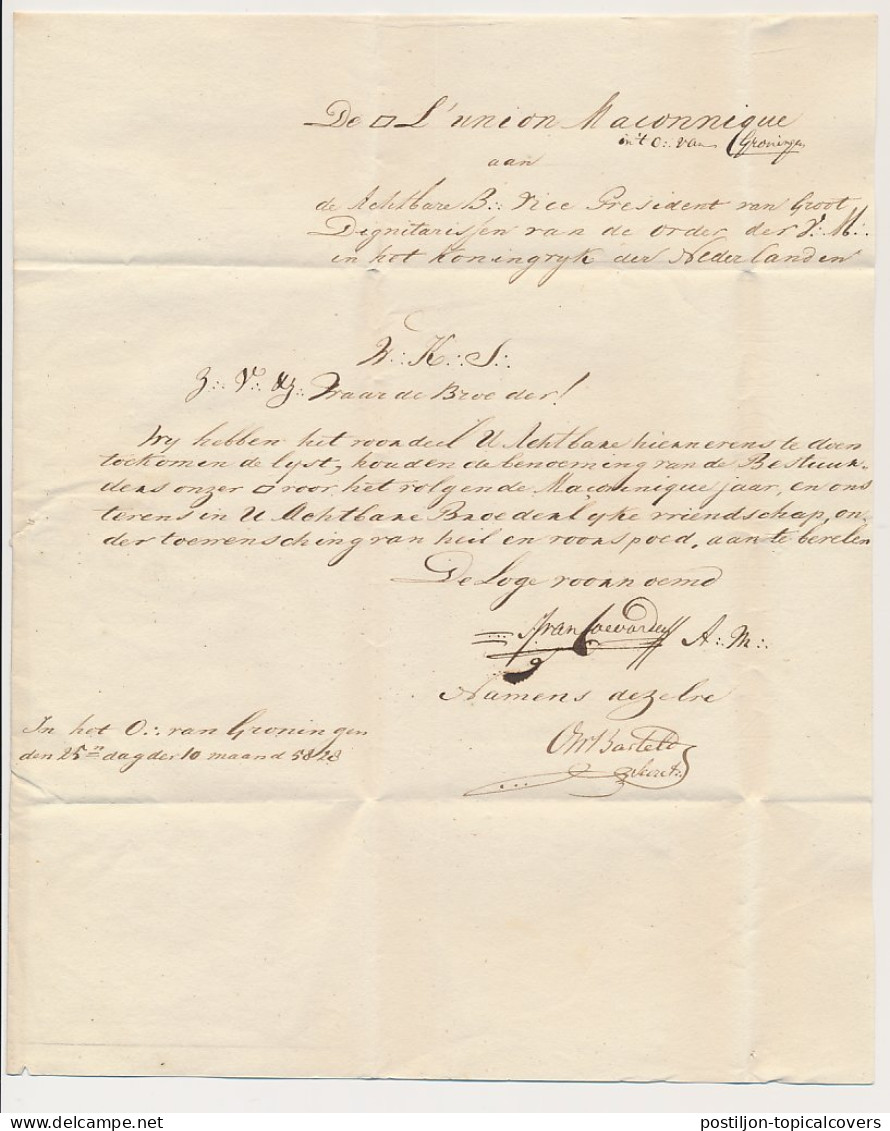 De ▱ L'union Maconnique
in 't O∴ van Groningen
aan
de Achtbare B∴ Vice President van Groot
Dignitarissen van de order der V∴ M∴
in het Koningryk der Nederlanden
W∴ K∴ S∴
Z∴ V∴ & Z∴ Waarde Broeder!
Wy hebben het voordeel U Achtbare hiernevens te doen
toekomen de lyst, houdende benoeming van de Bestuur-
ders onzer ▱ voor het volgende Maçonnique jaar, en ons
tevens in U Achtbare Broederlyke vriendschap, on-
der toewensching van heil en voorspoed, aan te bevelen
De Loge voornoemd
van Coevorden A∴ M∴
Namens dezelve
Barteld
Secret∴
In het O∴ van Groningen
den 25n dag der 10 maand 5828
postiljon-topicalcovers